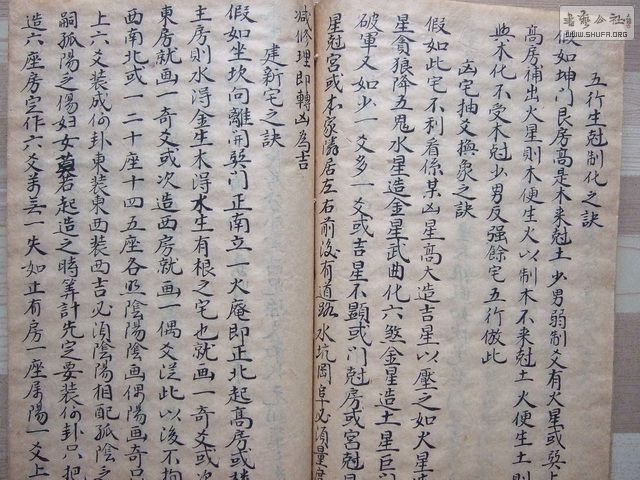 五行生尅制化之訣
假如坤門艮房高是木来尅土少男弱制爻有火星或巽上
高房補出火星則木便生火以制木不来尅土火便生土則
與木化不受木尅少男反强餘宅五行倣此
凶宅抽爻換象之訣
假如此宅不利看係某凶星高大造吉星以壓之如火星
星貪狼降五鬼水星造金星武曲化六煞金星造土星巨
破軍又如少一爻多一爻或吉星不顯或门尅房或宫尅星
星尅宫或本家隣居左右前後有道路水坑岡阜必須量度
减修理即轉凶為吉
建新宅之訣
假如坐坎向離開巽门正南立一火庵即正北起高房或樓
主房則水得金生木得水生有根之宅也就画一奇爻或次
東房就画一奇爻或次造西房就画一偶爻従此以後不拘
西南北或一二十座十四五座各照陰陽陰画偶陽画奇只
上六爻装成何卦東装東西装西吉必須陰陽相配孤陰之
嗣孤陽之傷妇女莫若起造之時筭計先定要装何卦只把
造六座房宅作六爻萬丢一失如正有房一座属陽一爻上
書藝公社
WWW.SHUFA.ORG